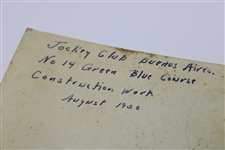 Jockey Club Buenos Aires.
No 14 Green Blue Course
Construction Work
August 1930